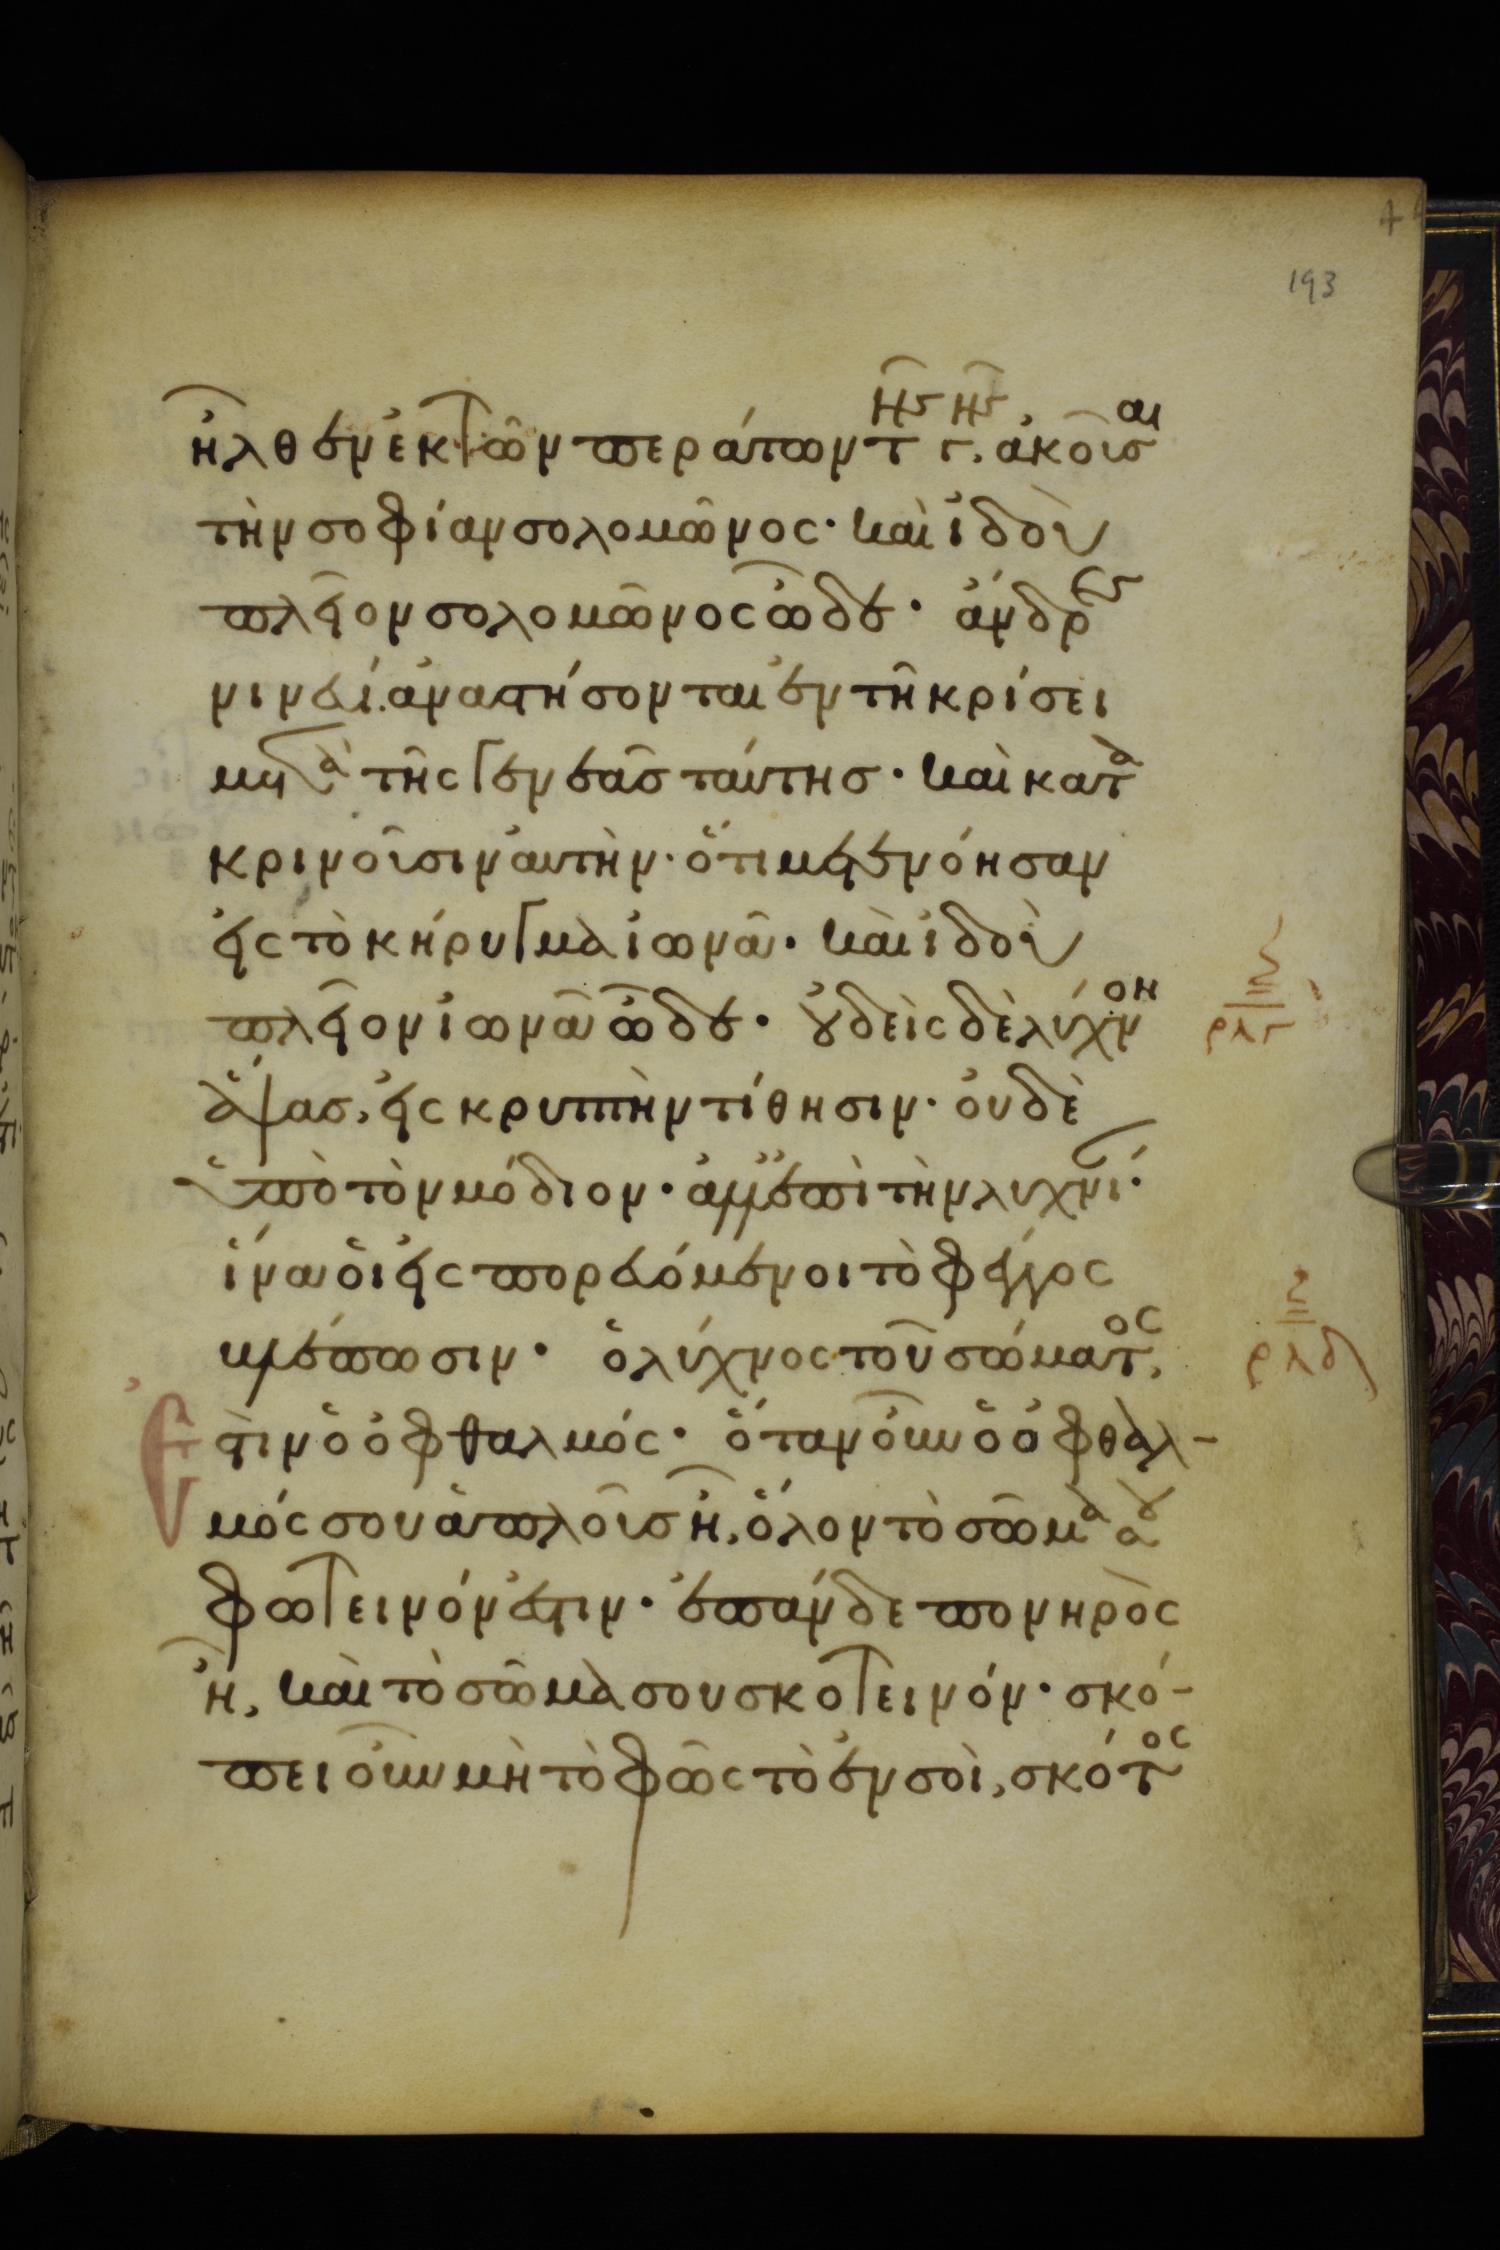 193
ἦλθεν ἐκ τῶν περάτων τῆς γῆς, ἀκοῦσαι
τὴν σοφίαν σολομῶνος· καὶ ἰδοὺ
πλεῖον σολομῶνος ὧδε· ἄνδρες
νινευί. ἀναστήσονται ἐν τῆ κρίσει
μετὰ τῆς γενεᾶς ταύτης· καὶ κατα
κρινοῦσιν αὐτήν· ὅτι μετενόησαν
εἰς τὸ κήρυγμα ἰωνᾶ· καὶ ἰδοὺ
πλεῖον ἰωνᾶ ὧδε· οὐδεὶς δὲ λύχνον
ρλγ
ἅψας, εἰς κρυπτὴν τίθησιν· οὐδὲ
ὑπὸ τὸν μόδιον· ἀλλ' ἐπὶ τὴν λυχνί·
ἵνα οἱ εἰσπορευόμενοι τὸ φέγγος
βλέπωσιν· ὁ λύχνος τοῦ σώματος,
ρλδ
ἐστιν ὁ ὀφθαλμός· ὅταν οὖν ὁ ὀφθαλ-
μός σου ἁπλοῦς ἦ, ὅλον τὸ σῶμα σου
φωτεινόν ἐστιν· ἐπὰν δε πονηρὸς
ἦ, καὶ τὸ σῶμα σου σκοτεινόν· σκό-
πει οὖν μὴ τὸ φῶς τὸ ἐν σοὶ, σκότος